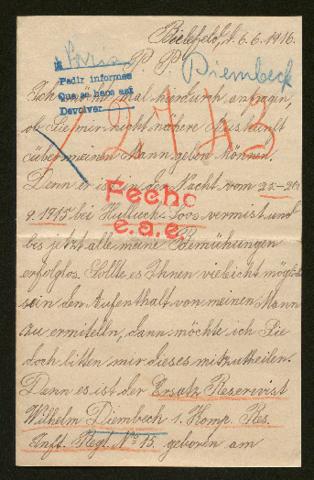 Bielefeld, d. 6.6.1916.
P. P.
Diembeck
Pedir informes
Que se haos ast
Devolver
Ich möchte mal hierdurch anfragen,
ob Sie mir nicht nähere Auskunft
über meinen Mann geben können.
Denn er ist in der Nacht vom 25-26
9. 1915 bei Hulluck-Loos vermist und
bis jetzt alle meine Bemühungen
erfolglos. Sollte es Ihnen vieleicht möglich
sein den Aufenthalt von meinen Mann
zu ermitelln, dann möchte ich Sie
doch bitten mir dieses mitzuteilen.
Dann es ist der Ersatz Reservist
Wilhelm Diembeck 1. Komp. Res.
Inft. Regt. No 15. geboren am
Fecho
e.a.e.